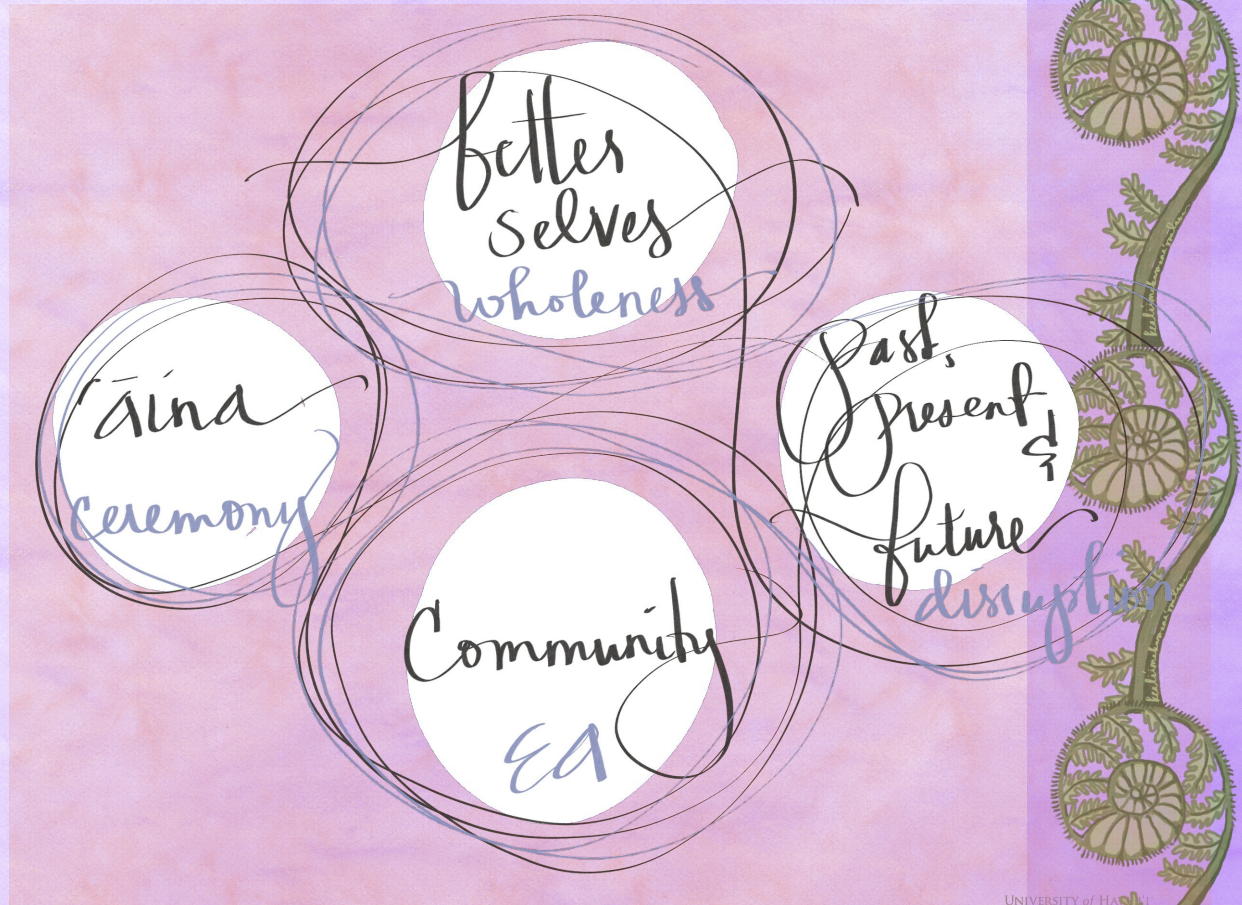 better
selves
wholeness
ʻāina
ceremony
Past,
present
&
future
disruption
Community
Ea
UNIVERSITY of